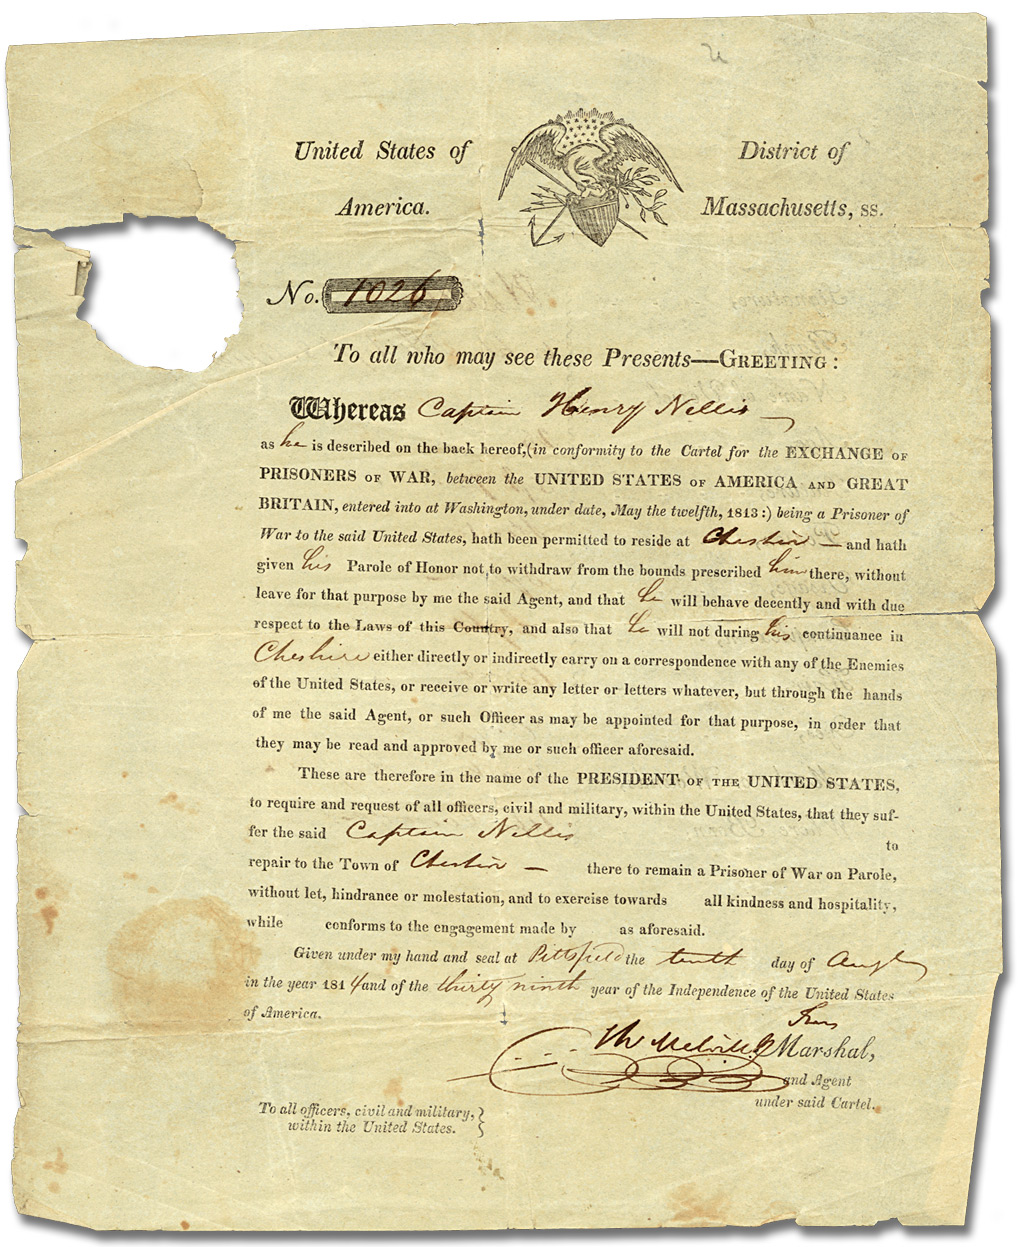 United States of America.
District of Massachusetts, ss.
No. 1026
To all who may see these Presents—GREETING:
Whereas Captain Henry Nellis
as he is described on the back hereof, (in conformity to the Cartel for the EXCHANGE OF
PRISONERS OF WAR, between the UNITED STATES OF AMERICA AND GREAT
BRITAIN, entered into at Washington, under date, May the twelfth, 1813:) being a Prisoner of
War to the said United States, hath been permitted to reside at Cheshire — and hath
given his Parole of Honor not to withdraw from the bounds prescribed him there, without
leave for that purpose by me the said Agent, and that he will behave decently and with due
respect to the Laws of this Country, and also that he will not during his continuance in
Cheshire either directly or indirectly carry on a correspondence with any of the Enemies
of the United States, or receive or write any letter or letters whatever, but through the hands
of me the said Agent, or such Officer as may be appointed for that purpose, in order that
they may be read and approved by me or such officer aforesaid.
These are therefore in the name of the PRESIDENT OF THE UNITED STATES,
to require and request of all officers, civil and military, within the United States, that they suf-
fer the said Captain Nellis to
repair to the Town of Cheshire — there to remain a Prisoner of War on Parole,
without let, hindrance or molestation, and to exercise towards all kindness and hospitality,
while conforms to the engagement made by as aforesaid.
Given under my hand and seal at Pittsfield the tenth day of Augt
in the year 1814 and of the thirty ninth year of the Independence of the United States
of America.
Th Melvill Jr Marshal,
and Agent
under said Cartel.
To all officers, civil and military,
within the United States.